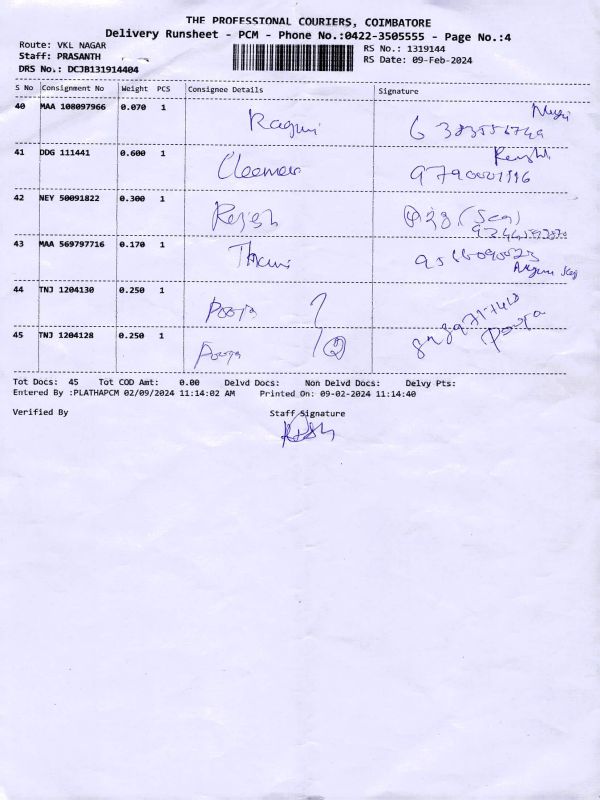 THE PROFESSIONAL COURIERS, COIMBATORE
Delivery Runsheet - PCM - Phone No.:0422-3505555 - Page No.:4
Route: VKL NAGAR
RS No.: 1319144
Staff: PRASANTH
RS Date: 09-Feb-2024
DRS No.: DCJB131914404
S No Consignment No Weight PCS Consignee Details Signature
40 MAA 108097966 0.070 1 Ragini
41 DDG 111441 0.600 1
42 NEY 50091822 0.300 1 Rejesh
43 MAA 569797716 0.170 1
44 TNJ 1204130 0.250 1 Pooja
45 TNJ 1204128 0.250 1 Pooja Pooja
Tot Docs: 45 Tot COD Amt: 0.00 Delvd Docs: Non Delvd Docs: Delvy Pts:
Entered By :PLATHAPCM 02/09/2024 11:14:02 AM Printed On: 09-02-2024 11:14:40
Verified By Staff Signature